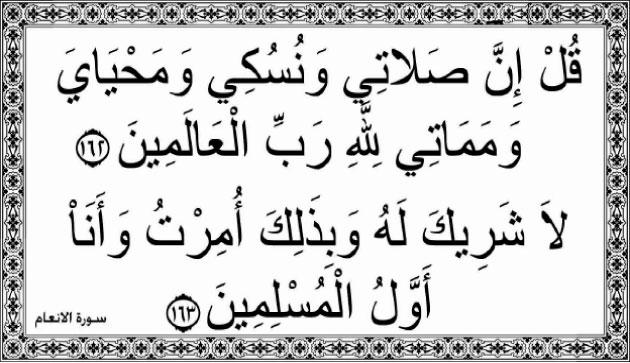 قُلْ إِنَّ صَلَاتِي وَنُسُكِي وَمَحْيَايَ
وَمَمَاتِي لِلَّهِ رَبِّ الْعَالَمِينَ ١٦٢
لَا شَرِيكَ لَهُ وَبِذَلِكَ أُمِرْتُ وَأَنَاْ
أَوَّلُ الْمُسْلِمِينَ ١٦٣
سورة الانعام